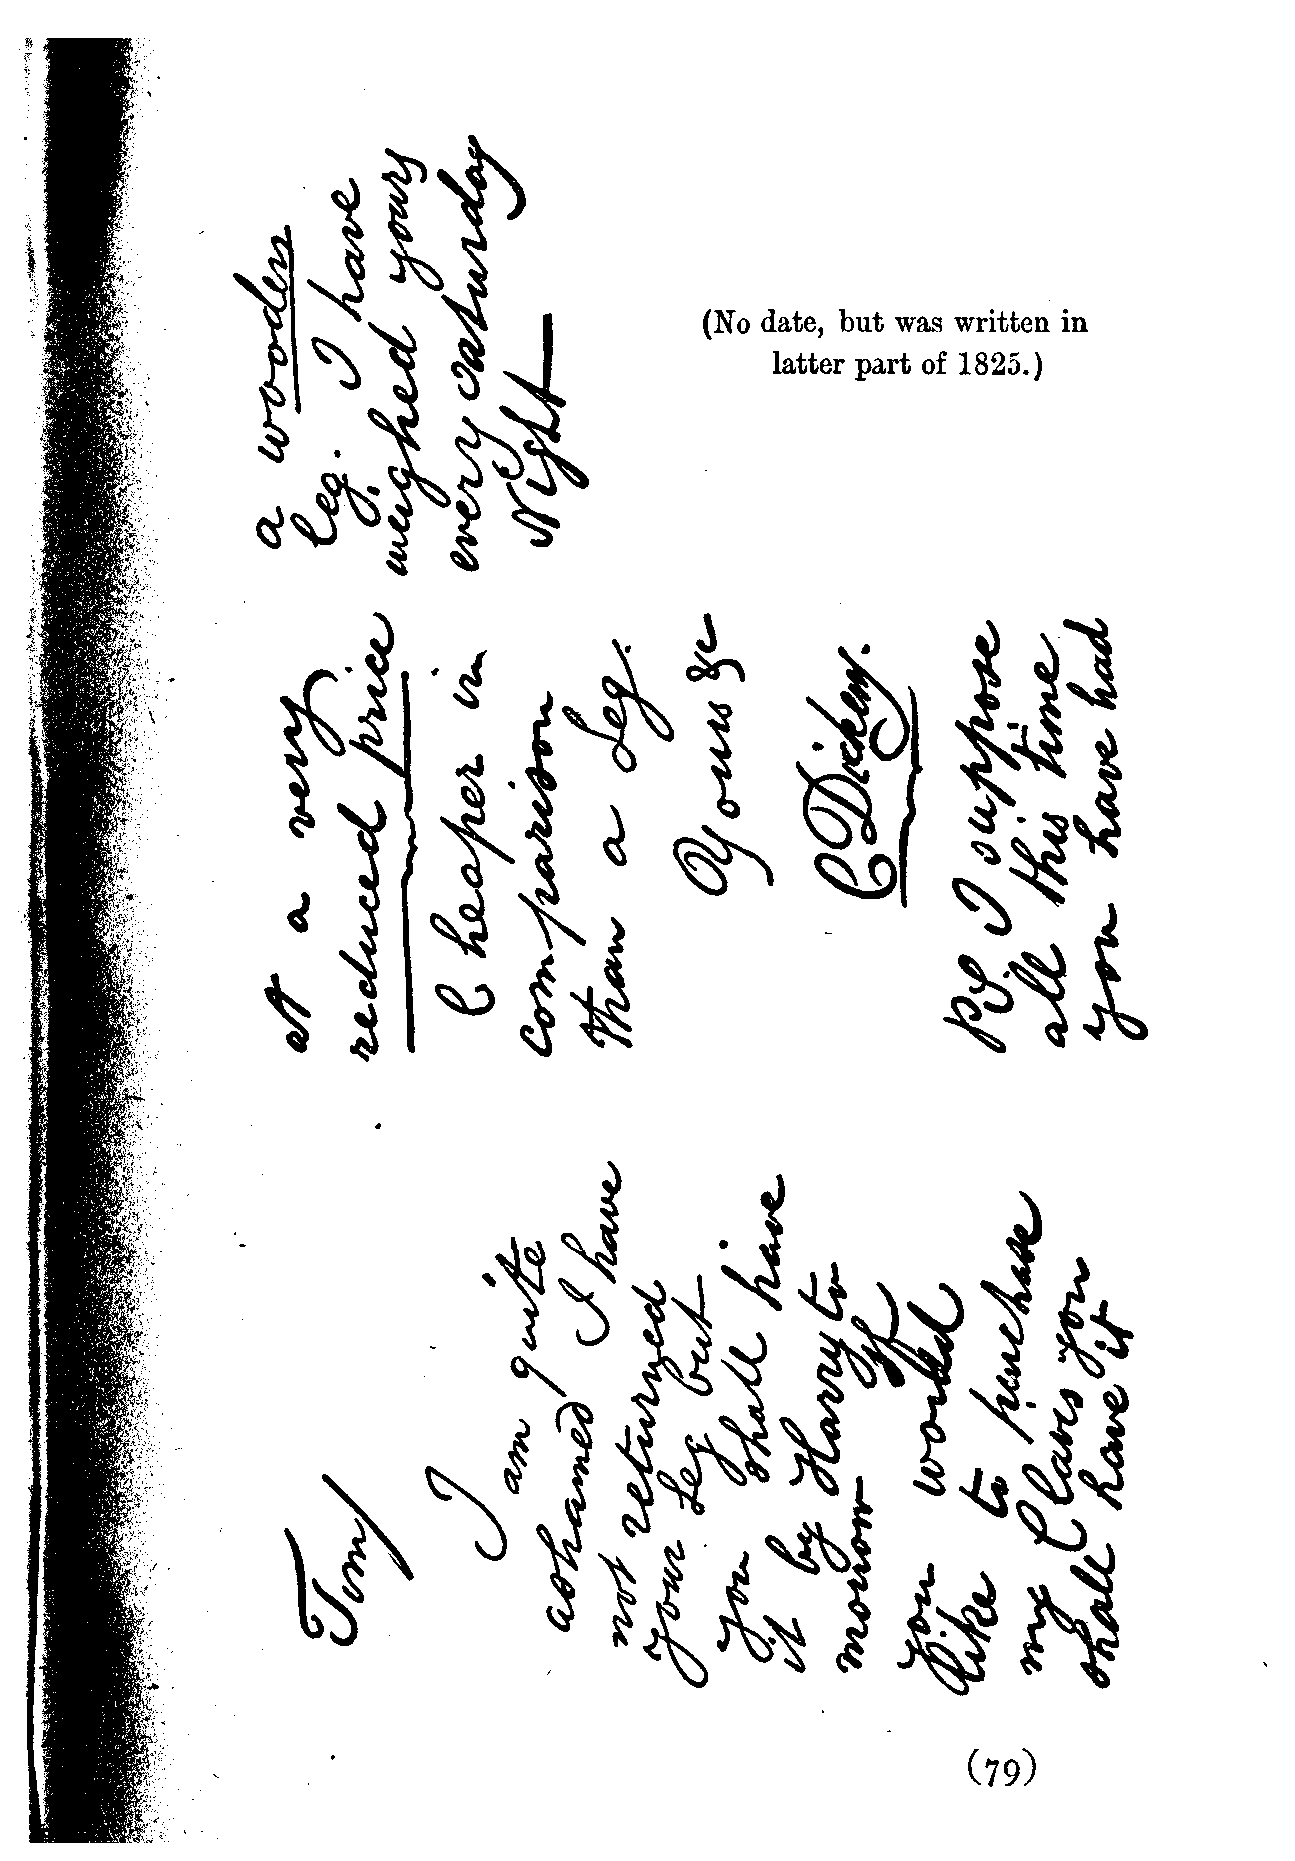 Tom
I
am quite
ashamed I have
not returned
your Leg but
you shall have
it by Harry to
morrow If
you would
like to purchase
my Clavis you
shall have it
at a very
reduced price
Cheaper in
comparison
than a Leg.
Yours &c
C Dickens.
PS I suppose
all this time
you have had
a wooden
leg. I have
weighed yours
every saturday
Night
(No date, but was written in
latter part of 1825.)
(79)